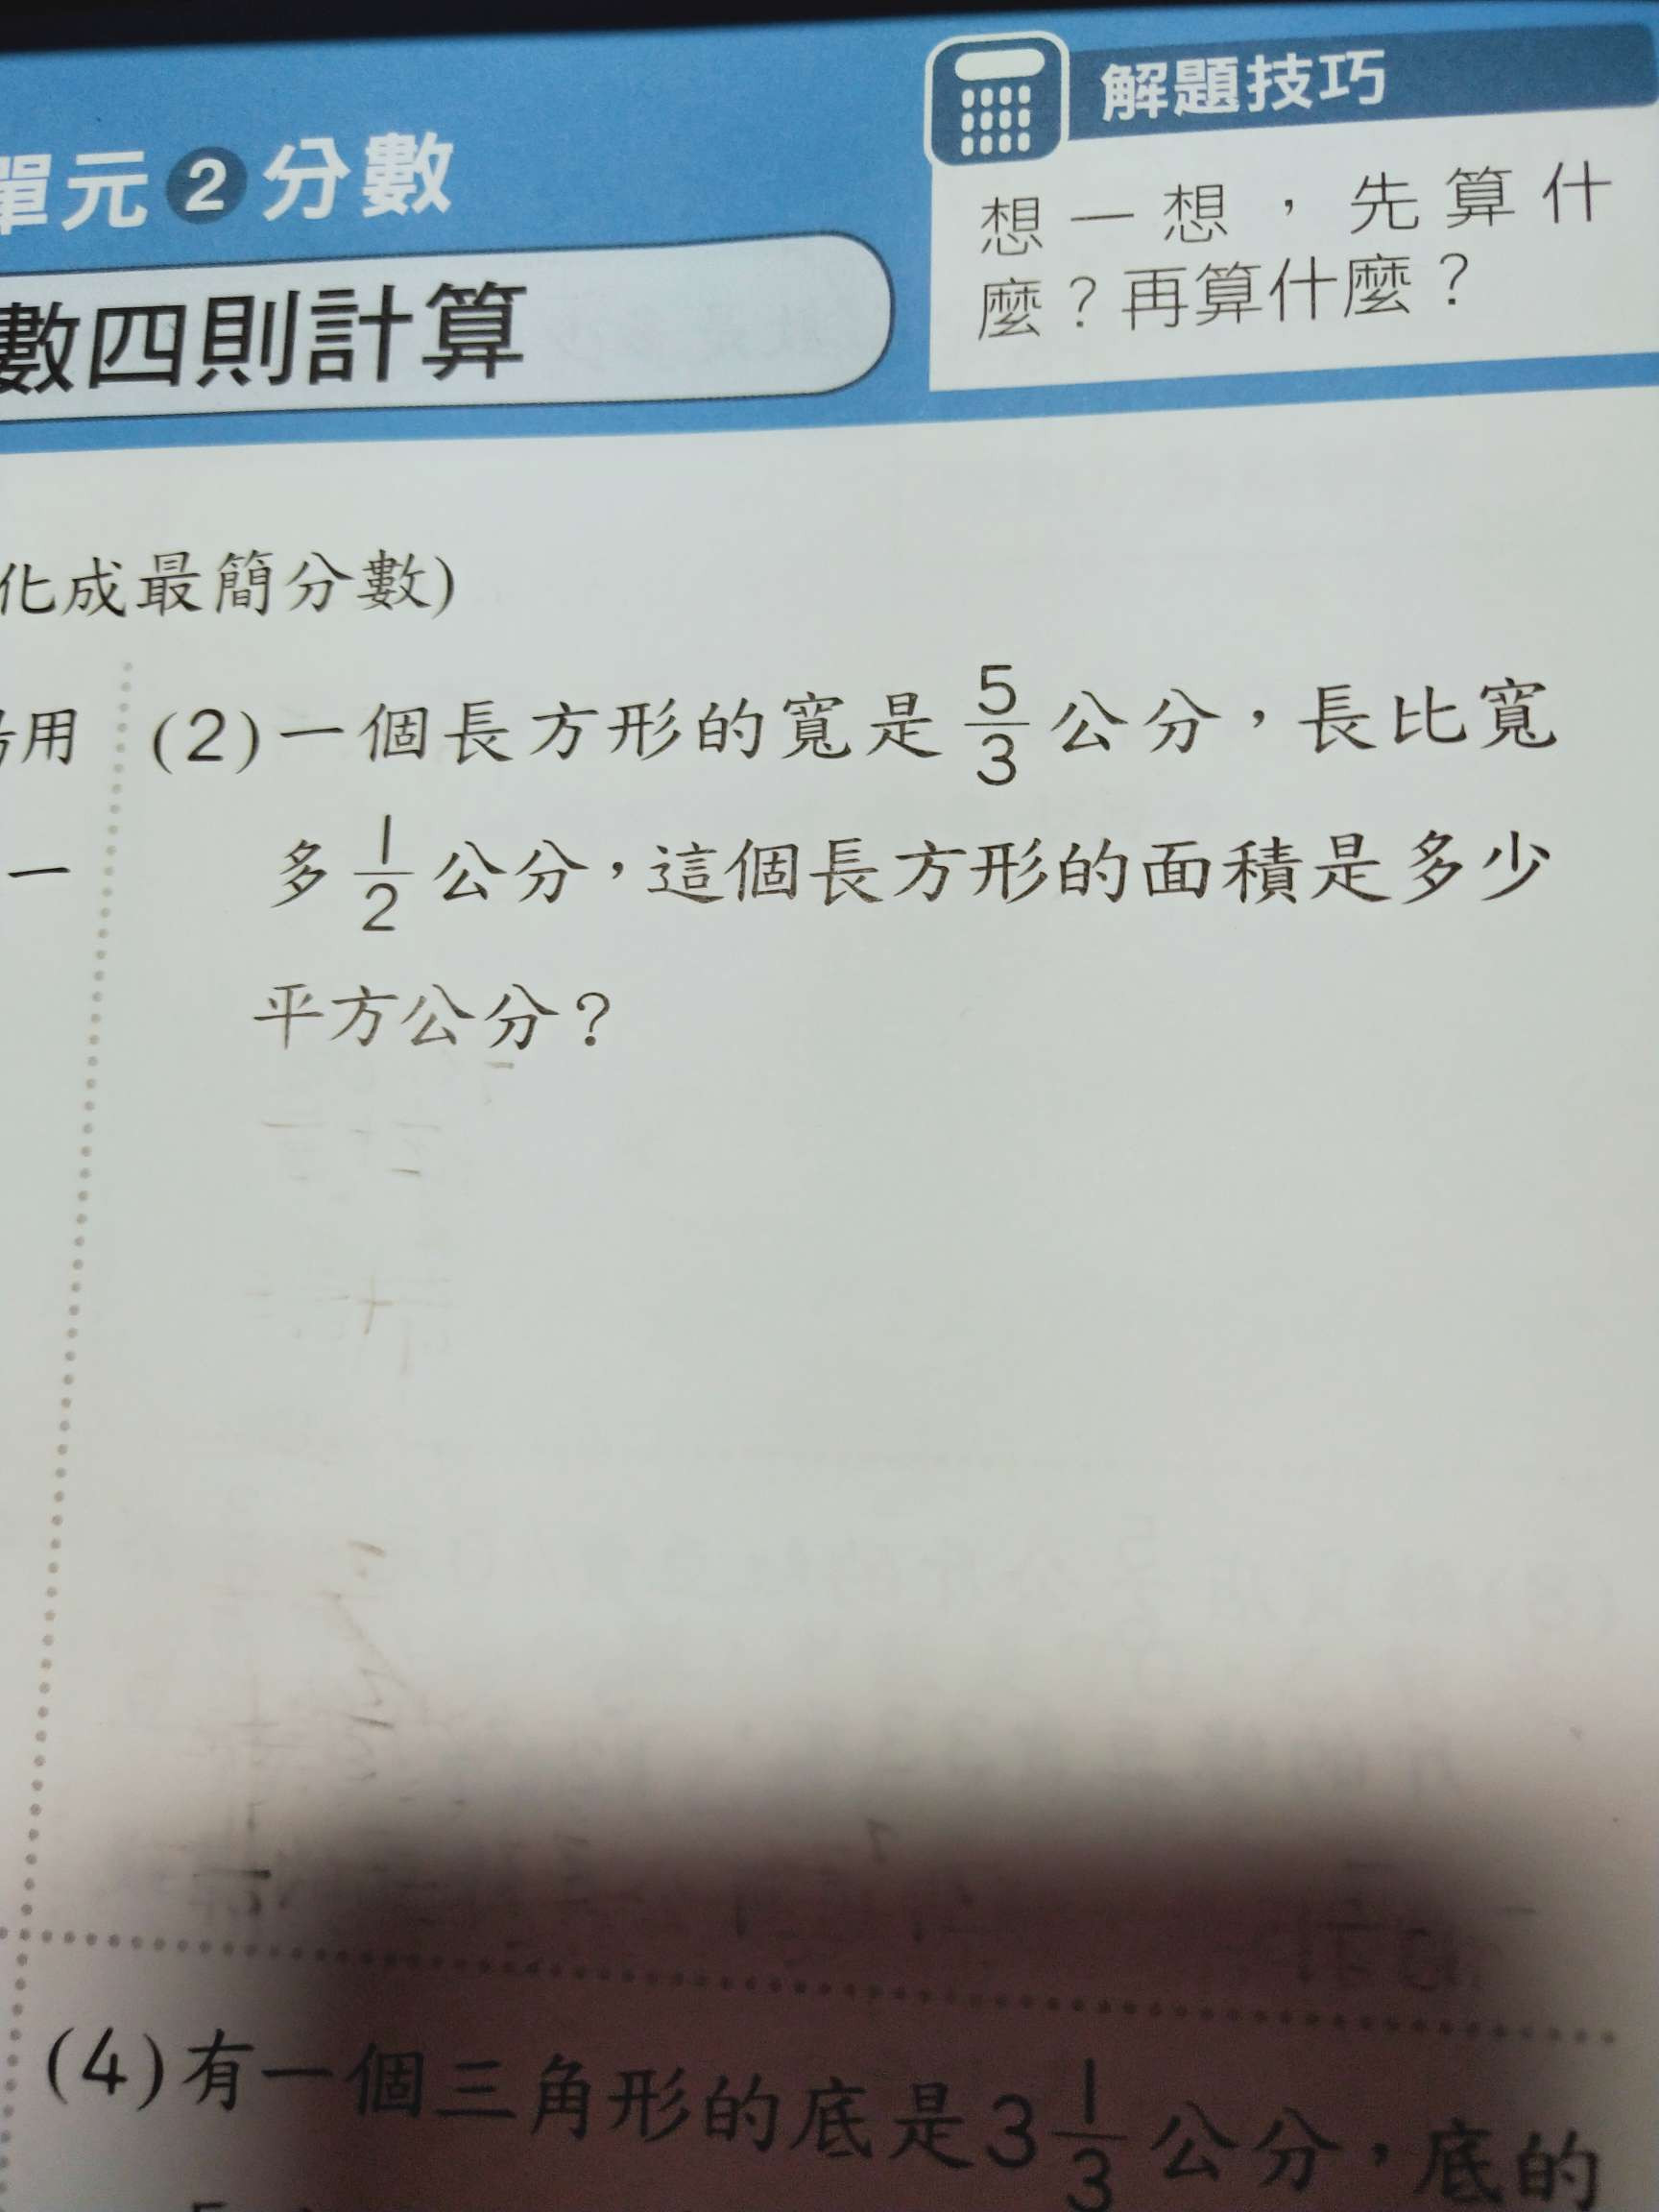 單元2分數
數四則計算
解題技巧
想一想，先算什
麼？再算什麼？
化成最簡分數)
用
一
(2)一個長方形的寬是5/3公分，長比寬
多1/2公分，這個長方形的面積是多少
平方公分？
(4)有一個三角形的底是3 1/3公分，底的